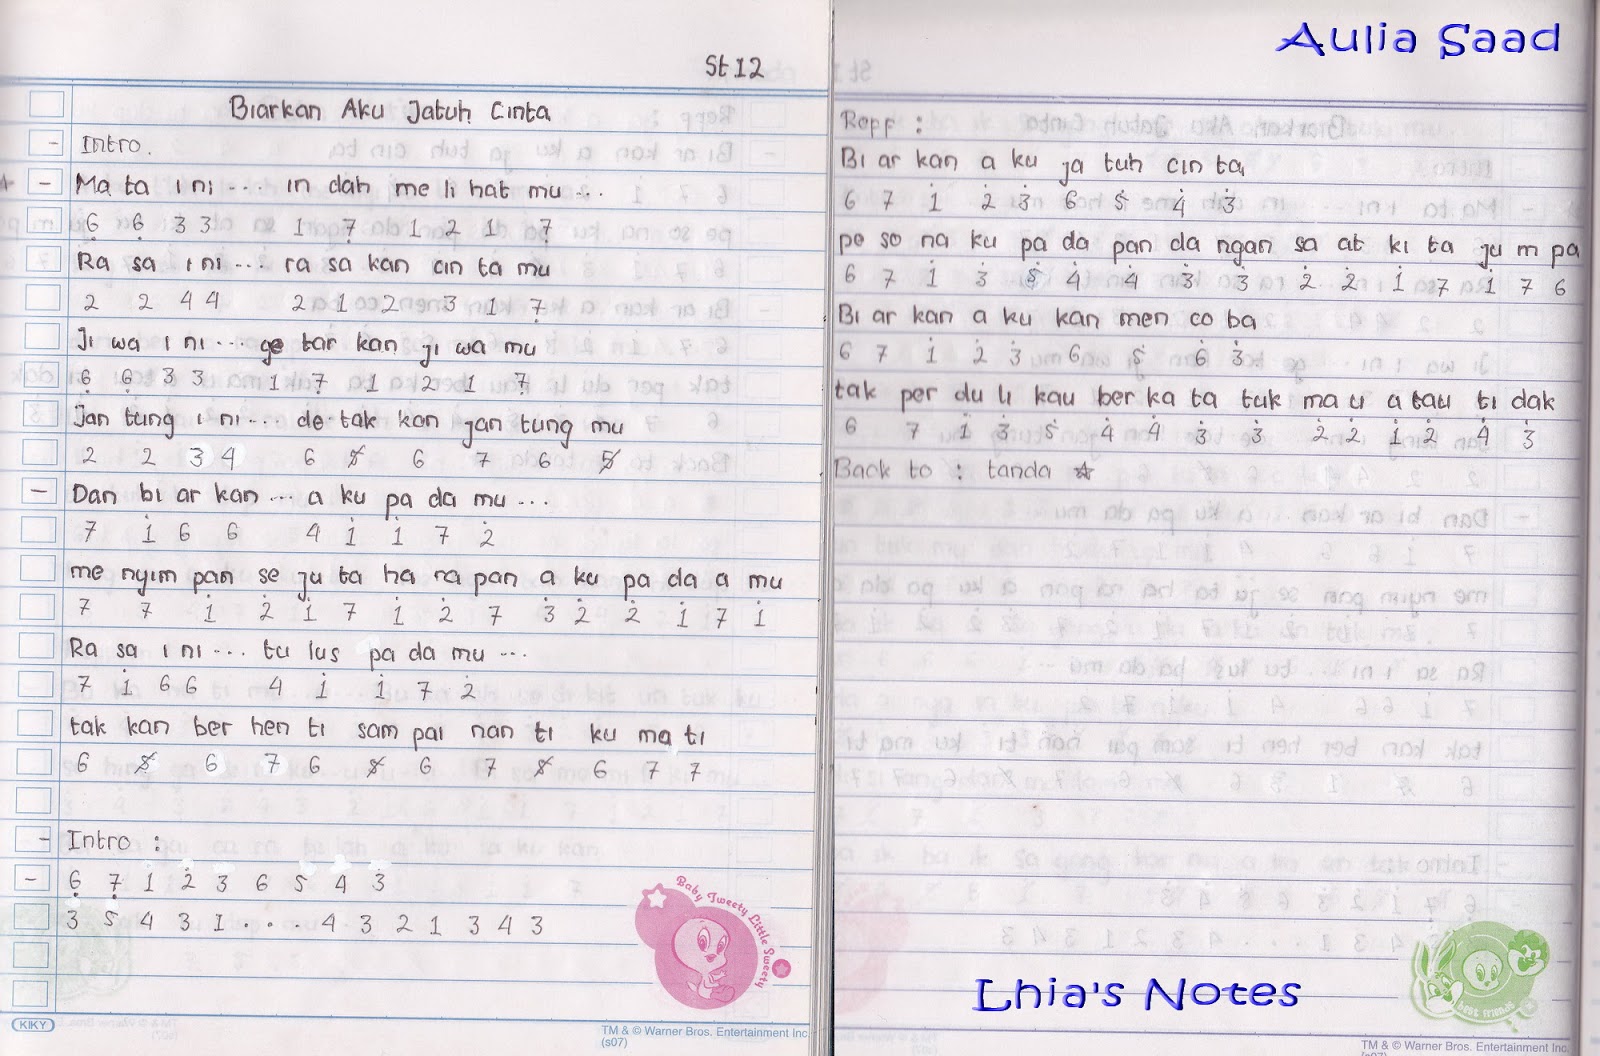 St 12
Biarkan Aku Jatuh Cinta
- Intro.
- Ma ta i ni ... in dah me li hat mu ...
6̣ 6̣ 3 3 1 7̣ 1 2 1 7̣
Ra sa i ni ... ra sa kan cin ta mu
2 2 4 4 2 1 2 3 1 7̣
Ji wa i ni ... ge tar kan ji wa mu
6̣ 6̣ 3 3 1 7̣ 1 2 1 7̣
Jan tung i ni ... de tak kan jan tung mu
2 2 3 4 6 5̸ 6 7 6 5̸
- Dan bi ar kan ... a ku pa da mu ...
7 1̇ 6 6 4 1̇ 1̇ 7 2̇
me nyim pan se ju ta ha ra pan a ku pa da a mu
7 7 1̇ 2̇ 1̇ 7 1̇ 2̇ 7 3̇ 2̇ 2̇ 1̇ 7 1̇
Ra sa i ni ... tu lus pa da mu ...
7 1̇ 6 6 4 1̇ 1̇ 7 2̇
tak kan ber hen ti sam pai nan ti ku ma ti
6 5̸ 6 7 6 5̸ 6 7 5̸ 6 7 7
- Intro :
- 6̣ 7̣ 1 2 3 6 5 4 3
3 5 4 3 1 . . . 4 3 2 1 3 4 3
Baby Tweety Little Sweety
KIKY
TM & © Warner Bros. Entertainment Inc.
(s07)
Aulia Saad
Reff :
Bi ar kan a ku ja tuh cin ta
6 7 1̇ 2̇ 3̇ 6 5̇ 4̇ 3̇
pe so na ku pa da pan da ngan sa at ki ta ju m pa
6 7 1̇ 3̇ 5̇ 4̇ 4̇ 3̇ 3̇ 2̇ 2̇ 1̇ 7 1̇ 7 6
Bi ar kan a ku kan men co ba
6 7 1̇ 2̇ 3̇ 6 5̇ 6̇ 3̇
tak per du li kau ber ka ta tuk ma u a tau ti dak
6 7 1̇ 3̇ 5̇ 4̇ 4̇ 3̇ 3̇ 2̇ 2̇ 1̇ 2̇ 4̇ 3̇
Back to : tanda ☆
Lhia's Notes
best friends
TM & © Warner Bros. Entertainment Inc.